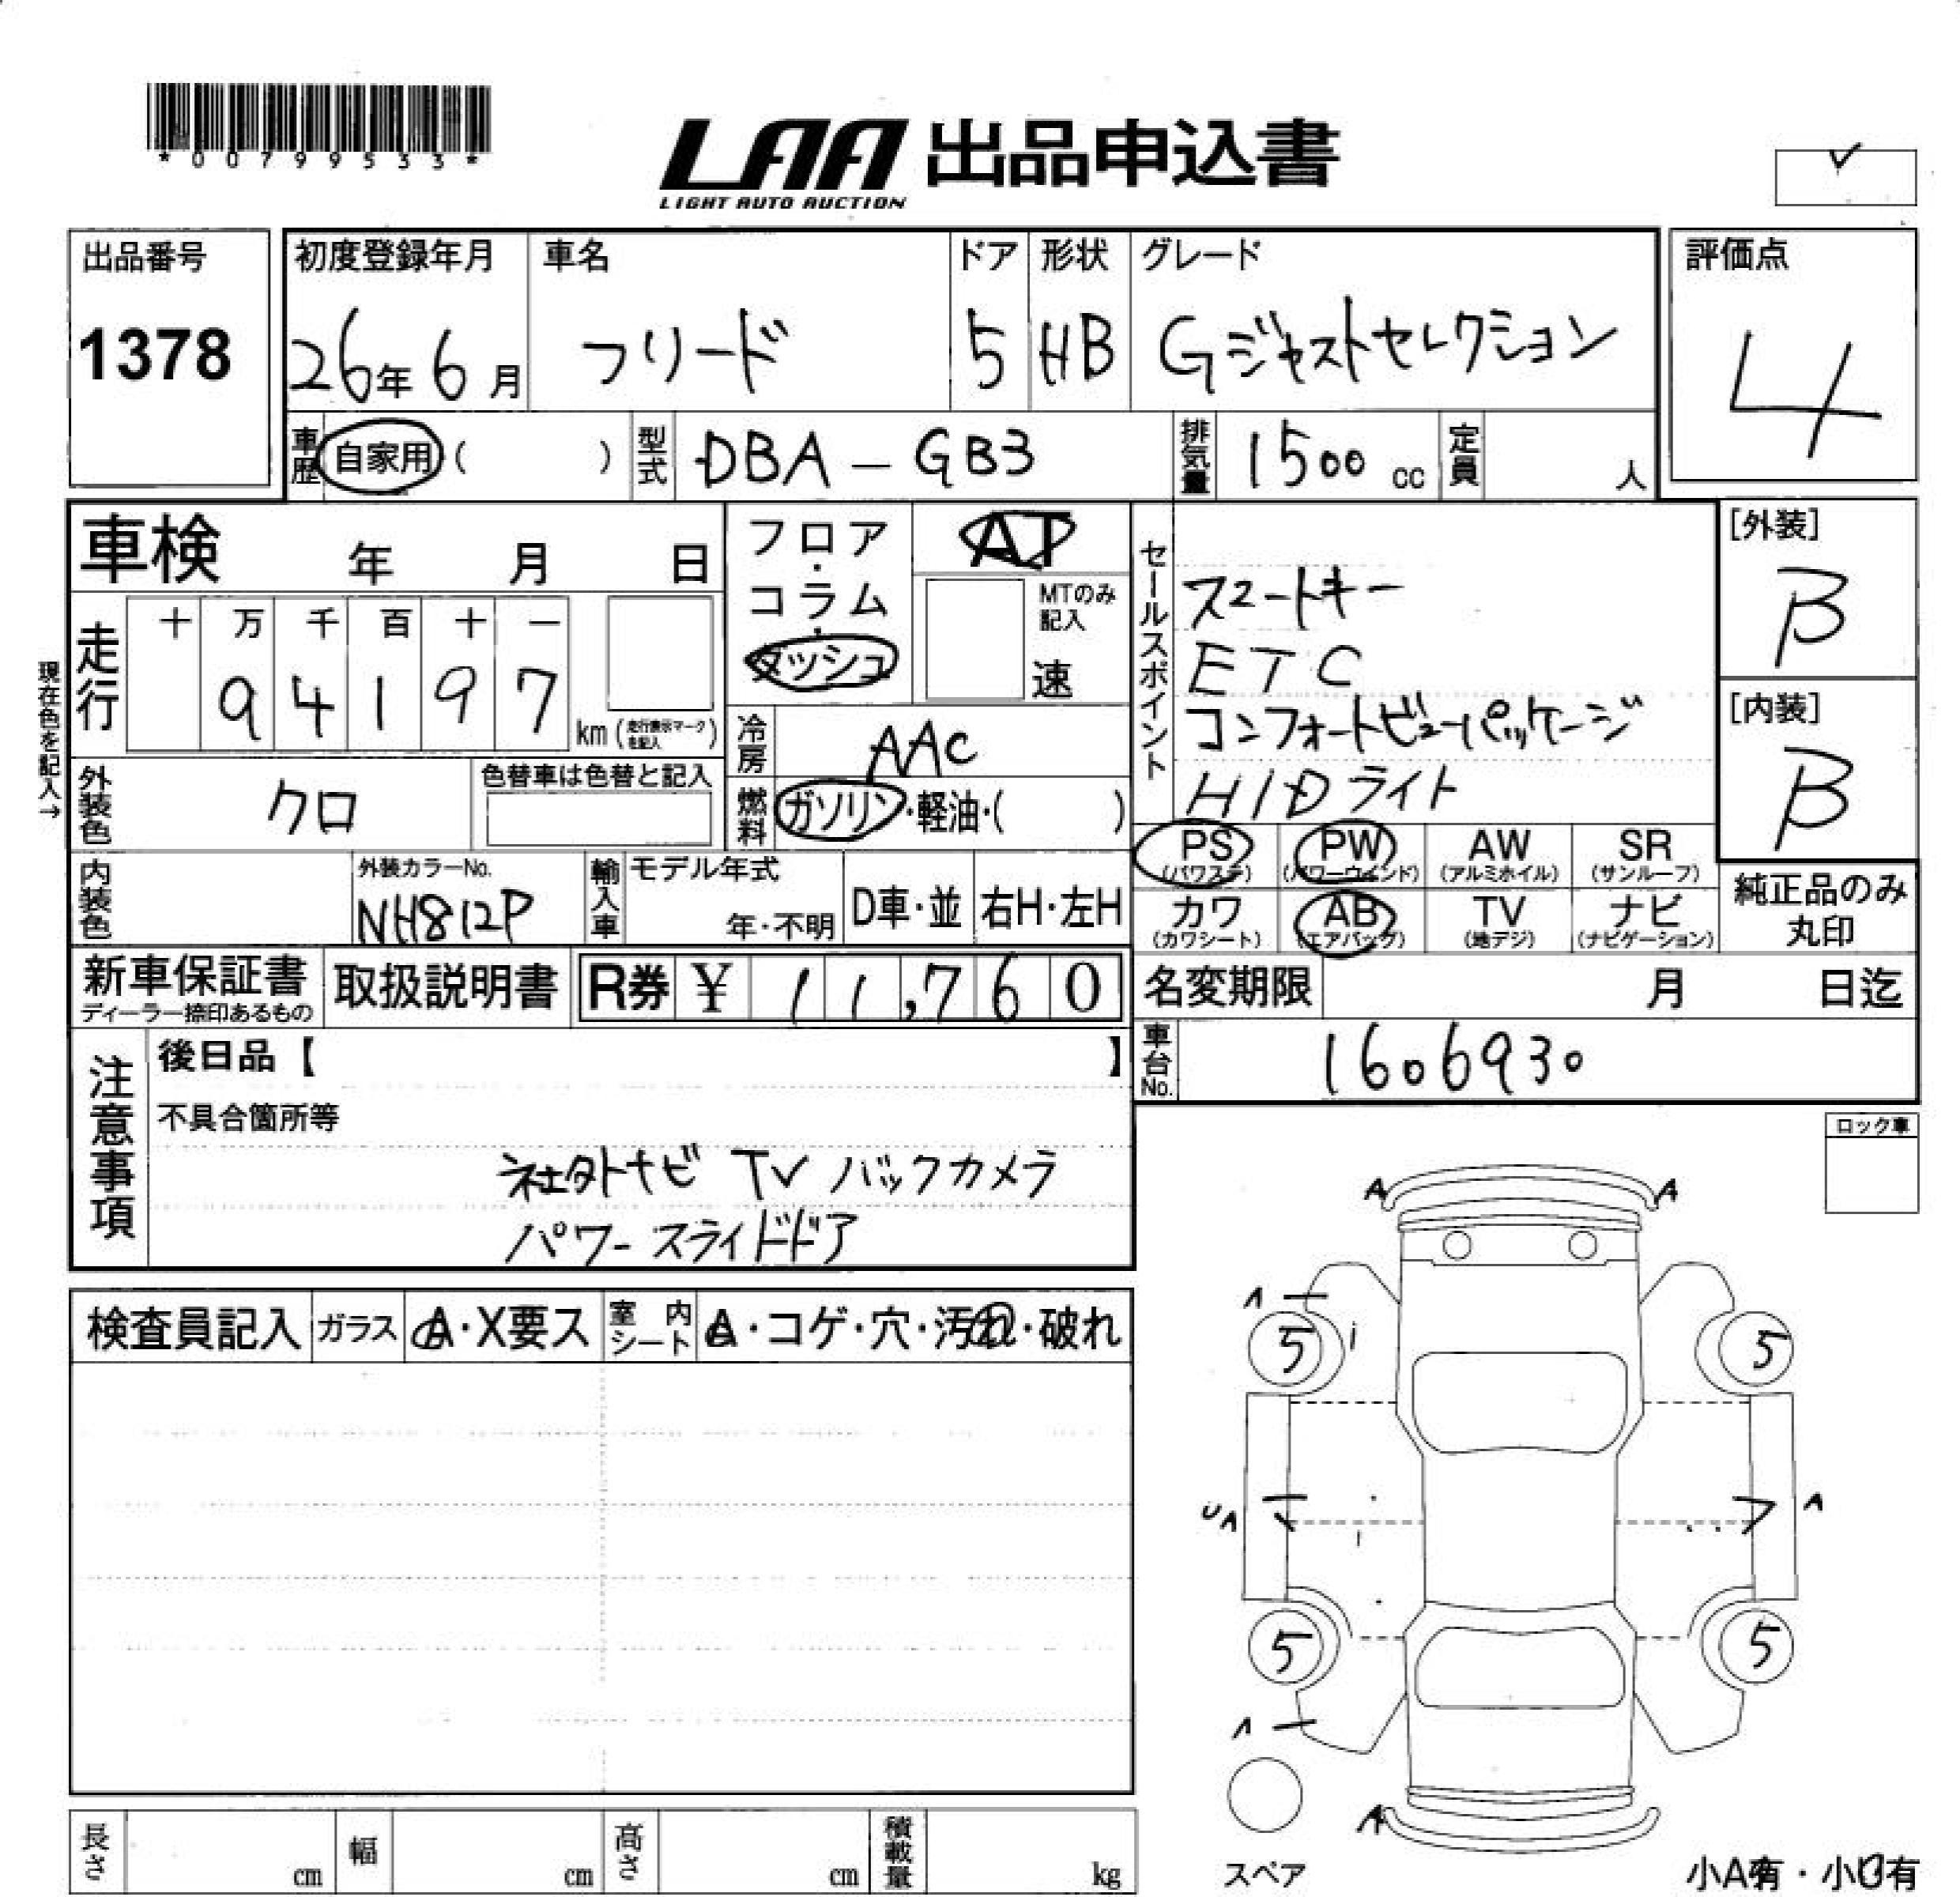 *00799533*
LAA 出品申込書
LIGHT AUTO AUCTION
出品番号
1378
初度登録年月
26年6月
車名
フリード
ドア
5
形状
HB
グレード
Gジャストセレクション
評価点
4
車歴 自家用 ( )
型式 DBA-GB3
排気量 1500 cc
定員 人
車検 年 月 日
走行
十 万 千 百 十 一
9 4 1 9 7
km (走行表示マークを記入)
現在色を記入→
外装色 クロ
色替車は色替と記入
内装色
外装カラーNo.
NH812P
フロア・コラム・ダッシュ
AT
MTのみ記入
速
冷房 AAC
燃料 ガソリン・軽油・( )
輸入車
モデル年式
年・不明
D車・並
右H・左H
セールスポイント
スマートキー
ETC
コンフォートビューパッケージ
HIDライト
[外装]
B
[内装]
B
PS (パワステ)
PW (パワーウインド)
AW (アルミホイル)
SR (サンルーフ)
カワ (カワシート)
AB (エアバッグ)
TV (地デジ)
ナビ (ナビゲーション)
純正品のみ
丸印
新車保証書
ディーラー捺印あるもの
取扱説明書
R券 ¥ 11,760
名変期限 月 日迄
車台No. 1606930
注意事項
後日品【 】
不具合箇所等
社外ナビ TV バックカメラ
パワースライドドア
ロック車
検査員記入
ガラス A・X要ス
室内シート A・コゲ・穴・汚れ・破れ
A A
A
5 5
U A A
5 5
A
A
スペア
小A有・小U有
長さ cm
幅 cm
高さ cm
積載量 kg